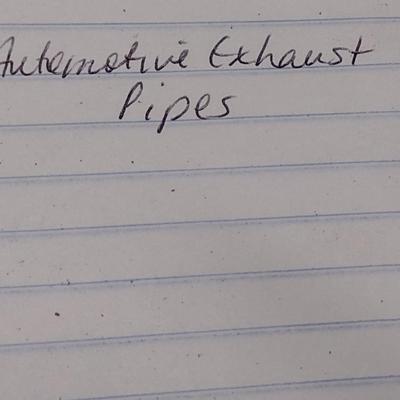 Automotive Exhaust
Pipes